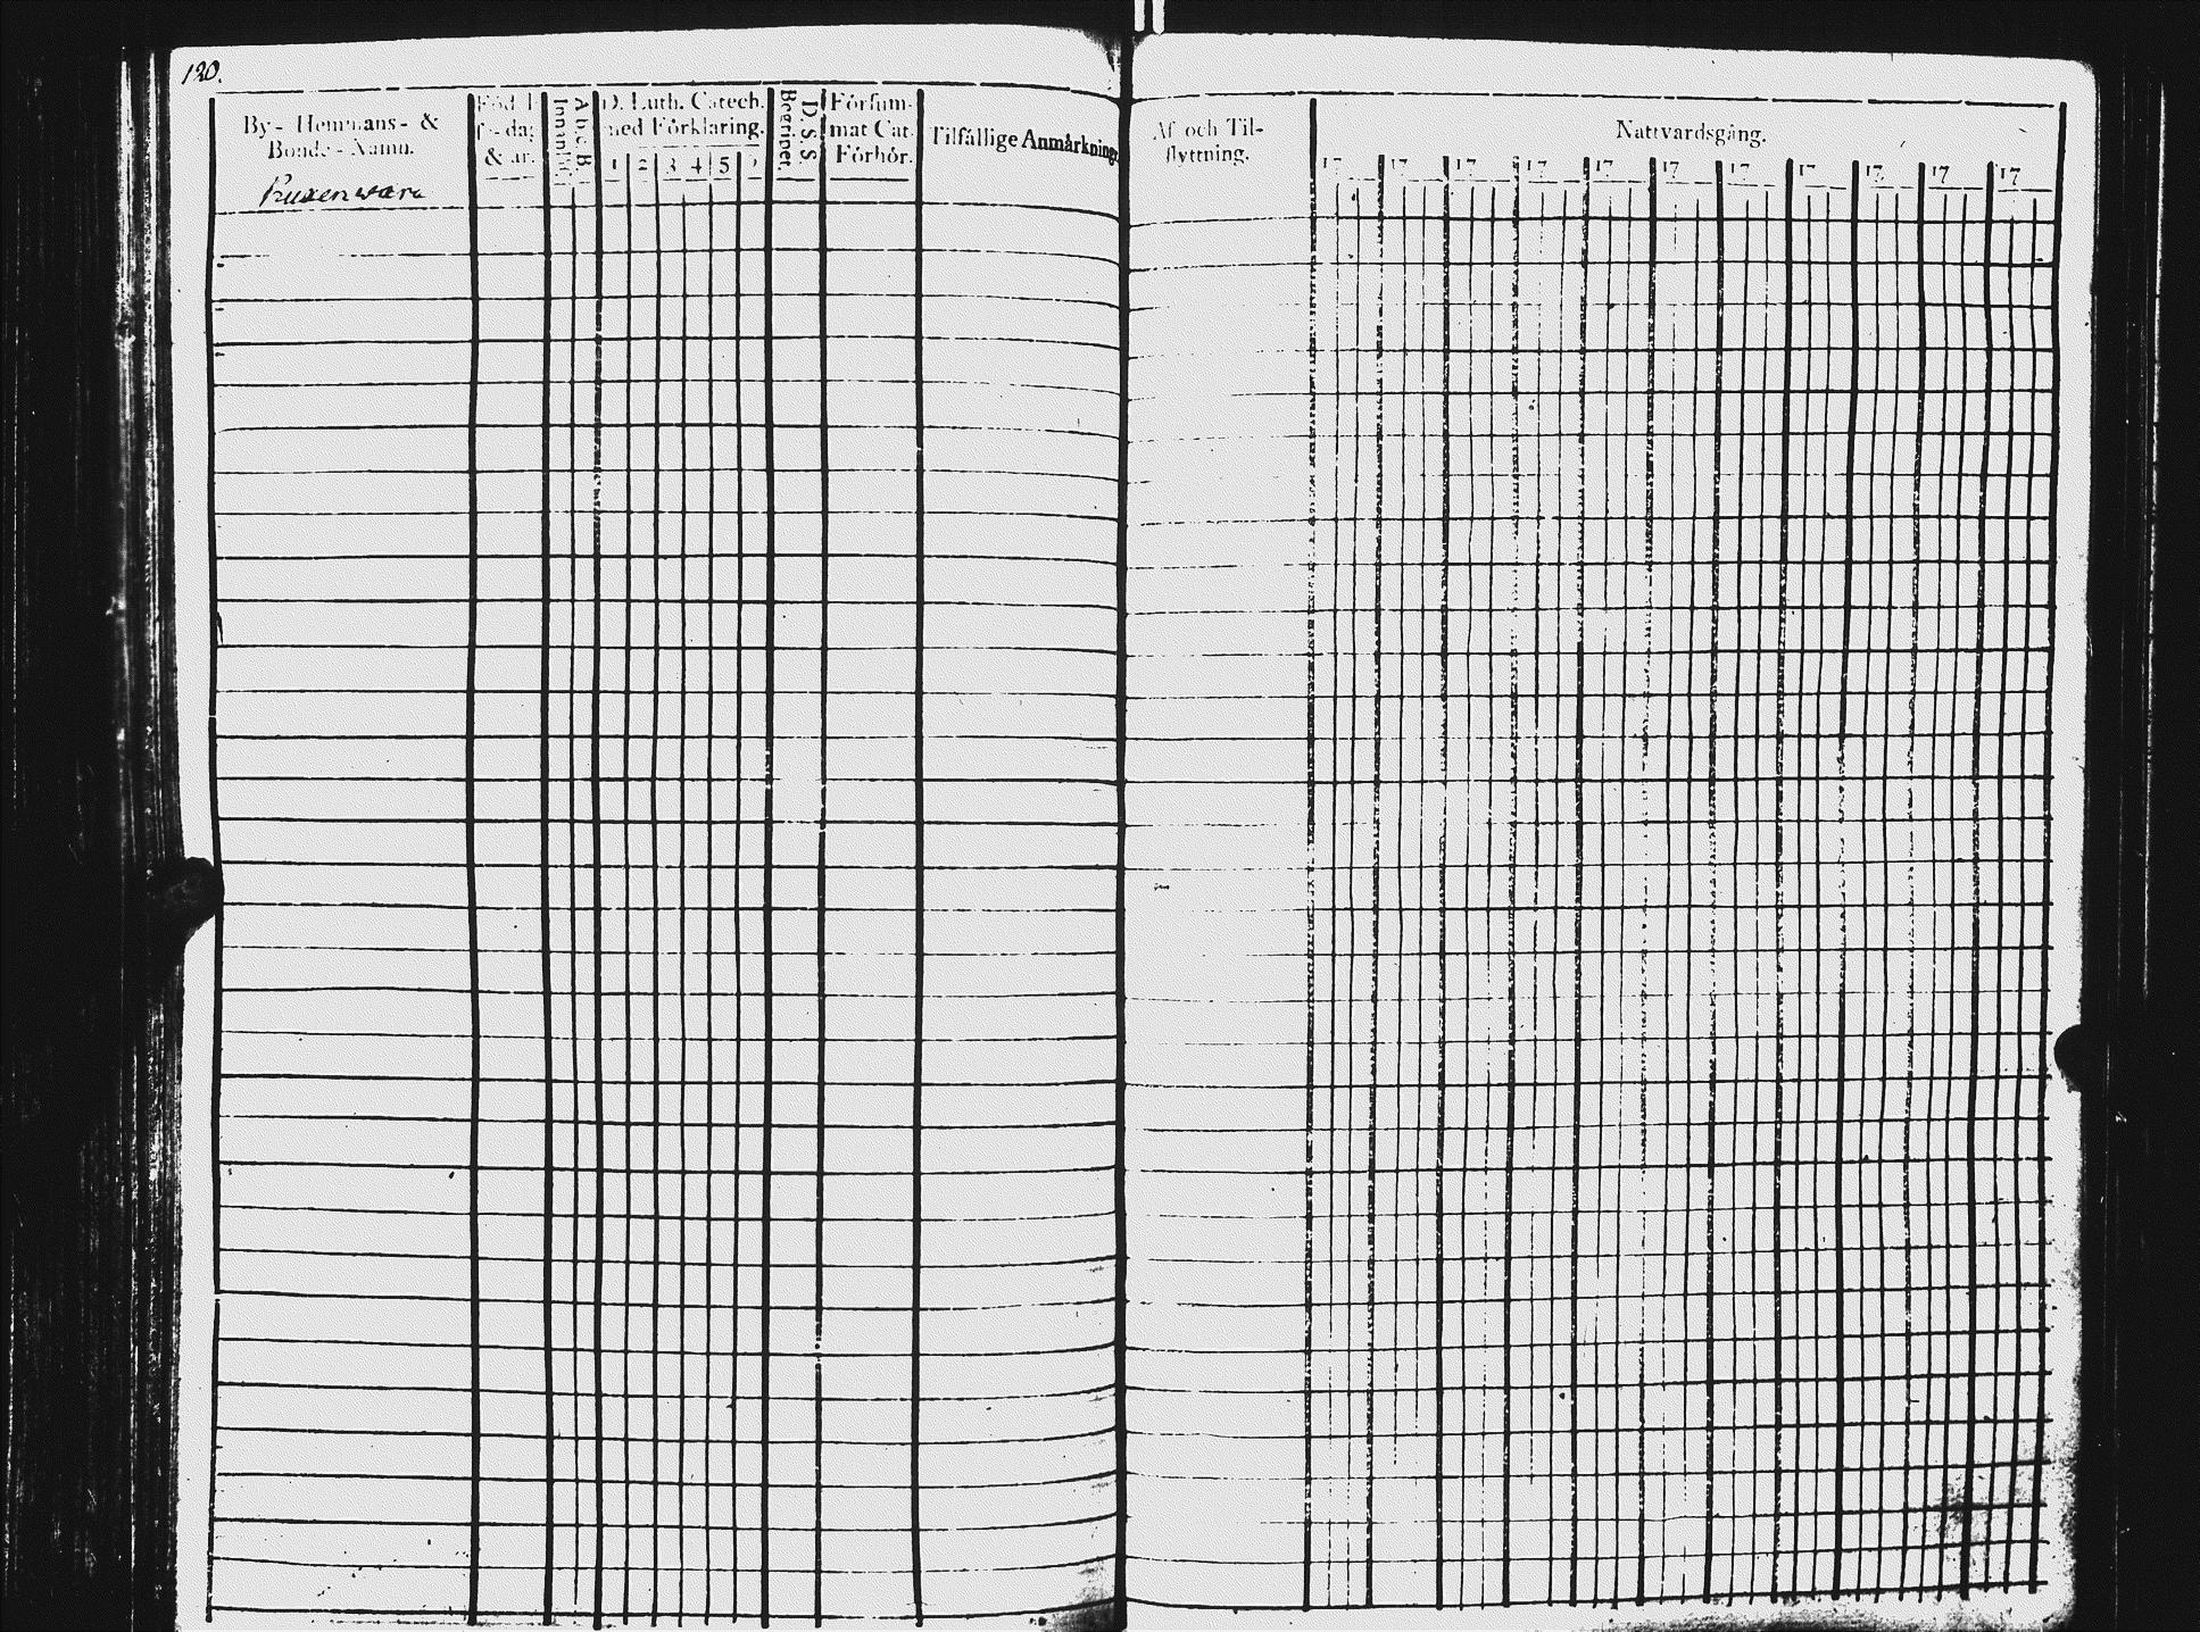 120.
By- Hemmans- &
Bonde-Namn.
& år.
Innanläs.
Abc B.
D. Luth. Catech.
med Förklaring.
1 2 3 4 5
Begripet.
D. S. S.
Försum-
mat Cat.
Förhör.
Tilfällige Anmärkning.
Af och Til-
flyttning.
Nattvardsgång.
17 17 17 17 17 17 17 17 17 17 17